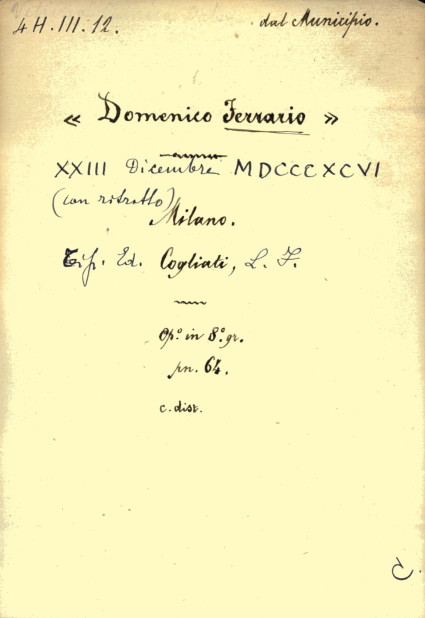 4 H. III. 12.
dal Municipio.
« Domenico Ferrario »
XXIII Dicembre MDCCCXCVI
(con ritratto)
Milano.
Tip. Ed. Cogliati, L. F.
Op.º in 8.º gr.
pn. 64.
c. dist.
C.